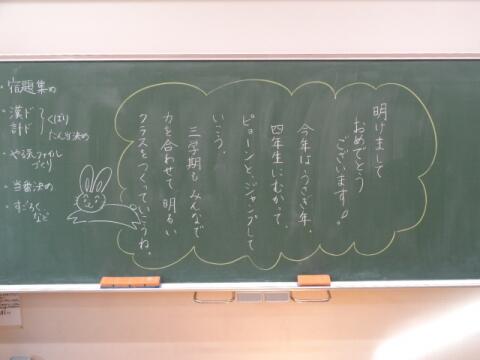 明けまして
おめでとう
ございます!
今年は、うさぎ年。
四年生にむかって、
ピョーンと、ジャンプして
いこう。
三学期も みんなで
力を合わせて、明るい
クラスをつくっていこうね。
・宿題集め
・漢ド
計ド
くばり
たんぱ決め
・やる気ファイル
づくり
・当番決め
・すごろく
など